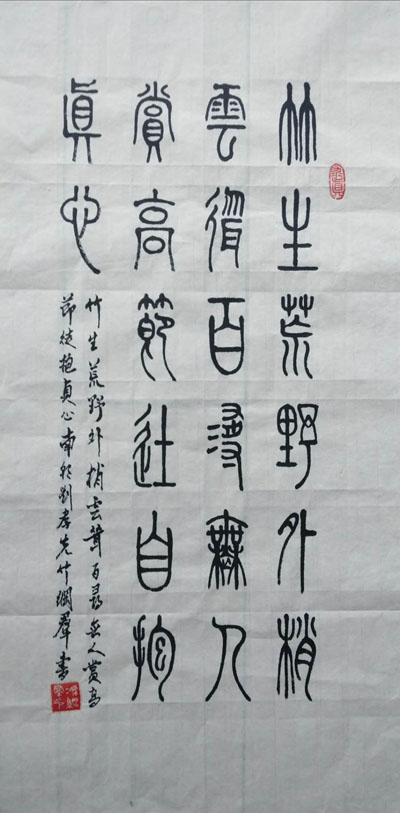 竹生荒野外梢
雲聳百尋無人
賞高節徒自抱
貞心
竹生荒野外梢雲聳百尋無人賞高
節徒抱貞心南朝劉孝先竹羣書